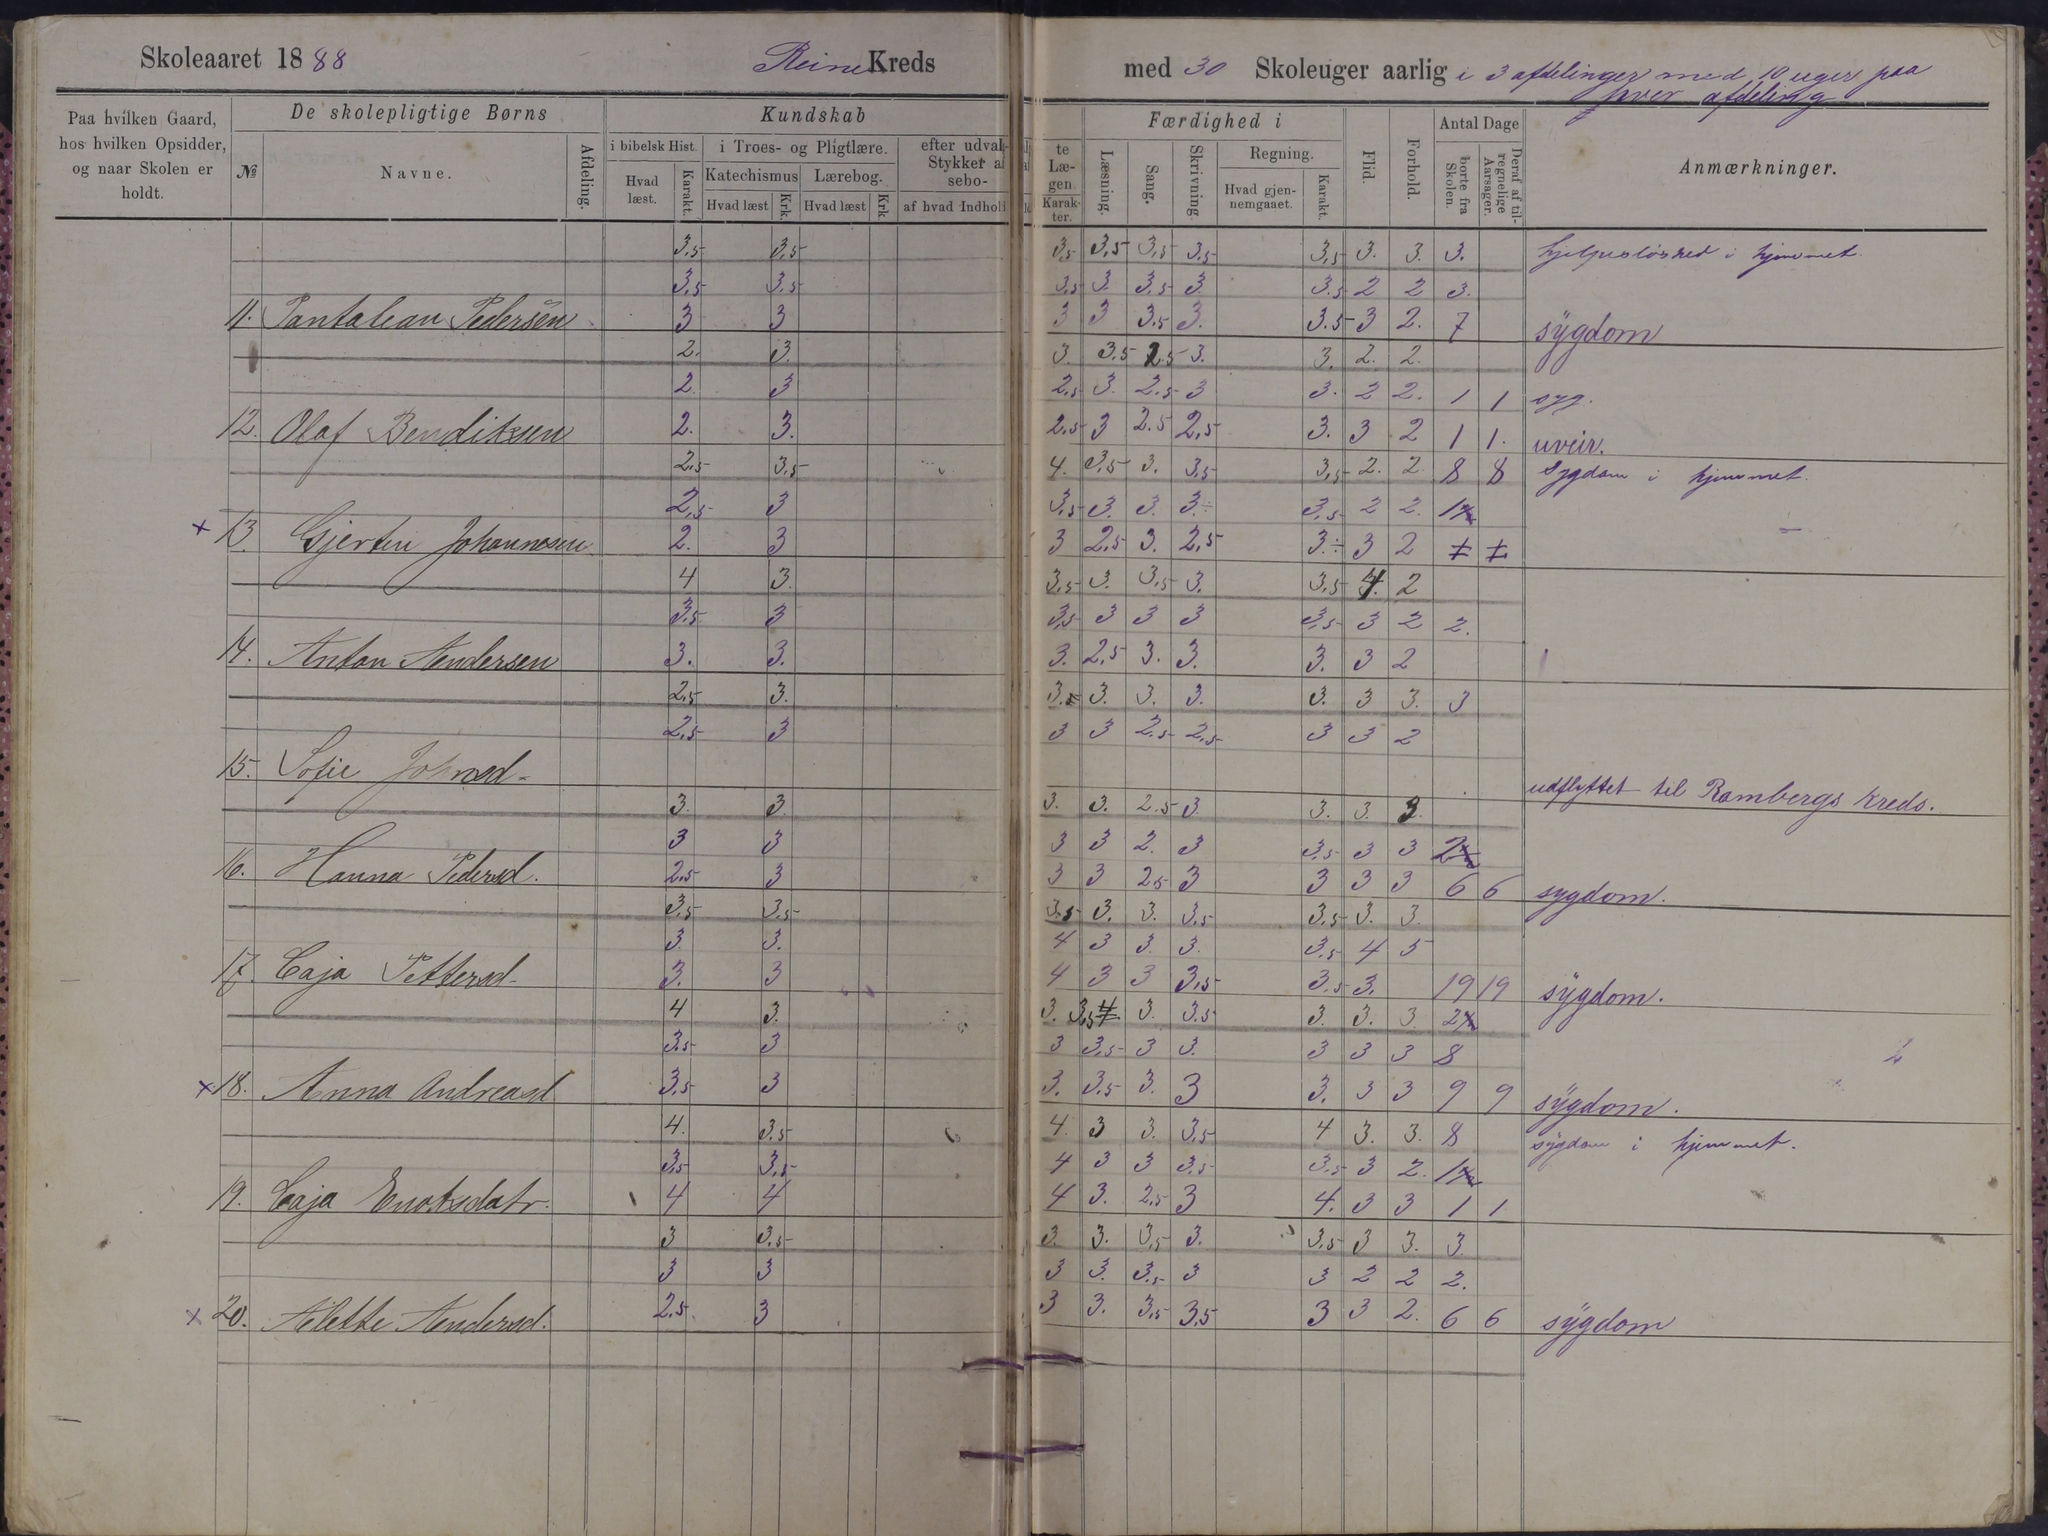 Skoleaaret 1888 Reine Kreds med 30 Skoleuger aarlig i 3 afdelinger med 10 uger paa
hver afdeling
Paa hvilken Gaard, hos hvilken Opsidder, og naar Skolen er holdt.
De skolepligtige Børns
№ Navne. Afdeling.
Kundskab
i bibelsk Hist. i Troes- og Pligtlære. efter udval- Stykket af sebo-
Hvad læst. Karakt. Katechismus Lærebog.
Hvad læst Krk. Hvad læst Krk af hvad Indhold
te Læ- gen Karak- ter.
Færdighed i
Læsning. Sang. Skrivning Regning.
Hvad gjen- nemgaaet. Karakt.
Flid. Forhold.
Antal Dage
borte fra Skolen. Deraf af til- regnelige Aarsager.
Anmærkninger.
3,5 3,5 3,5 3,5 3,5 3,5 3,5 3. 3. 3. hjelpesløshed i hjemmet.
3,5 3,5 3,5 3. 3,5 3 3.5 2 2 3.
11. Pantaleau Pedersen 3 3 3 3 3.5 3. 3.5 3 2. 7 sygdom
2. 3. 3. 3.5 2.5 3. 3. 2. 2.
2. 3 2,5 3. 2.5 3 3. 2 2. 1 1 syg.
12. Olaf Bendiksen 2. 3. 2.5 3 2.5 2,5 3. 3 2 1 1. uveir.
2,5 3,5 4. 3,5 3. 3,5 3,5 2. 2. 8 8 Sygdom i hjemmet.
2,5 3 3,5 3. 3. 3.÷ 3,5 2 2. 1
× 13. Gjertin Johannesen 2. 3 3 2,5 3. 2,5 3.÷ 3 2
4 3. 3,5 3. 3,5 3. 3,5 4. 2
3.5 3 3,5 3 3 3 3,5 3 2 2.
14. Anton Andersen 3. 3. 3. 2,5 3. 3. 3. 3 2
2,5 3. 3. 3. 3. 3. 3. 3 3. 3
2,5 3 3 3 2.5 2,5 3 3 2
15. Sofie Johnsd. udflyttet til Rambergs kreds.
3. 3. 3. 3. 2.5 3. 3. 3. 3.
3 3 3 3 2. 3 3,5 3 3 2
16. Hanna Pedersd. 2.5 3 3 3 2.5 3 3 3 3 6 6 sygdom.
3,5 3,5 3.5 3. 3. 3,5 3,5 3. 3.
3. 3. 4 3 3. 3. 3,5 4 5
17. Caja Pettersd. 3. 3 4 3 3 3,5 3,5 3. 19 19 sygdom.
4 3. 3. 3,5 3. 3.5 3. 3. 3. 2
3.5 3 3 3,5 3 3. 3 3 3 8
× 18. Anna Andreasd 3,5 3 3. 3.5 3. 3 3. 3 3 9 9 sygdom.
4. 3.5 4. 3 3. 3,5 4 3. 3. 8 sygdom i hjemmet.
3,5 3,5 4 3 3 3,5 3,5 3 2. 1
19. Caja Enoksdatr. 4 4 4 3. 2,5 3 4. 3 3 1 1.
3 3.5 3. 3. 3,5 3. 3,5 3 3. 3.
3 3 3 3. 3,5 3 3 2 2 2.
× 20. Alette Andersd. 2.5 3 3 3. 3,5 3,5 3 3 2. 6 6 sygdom